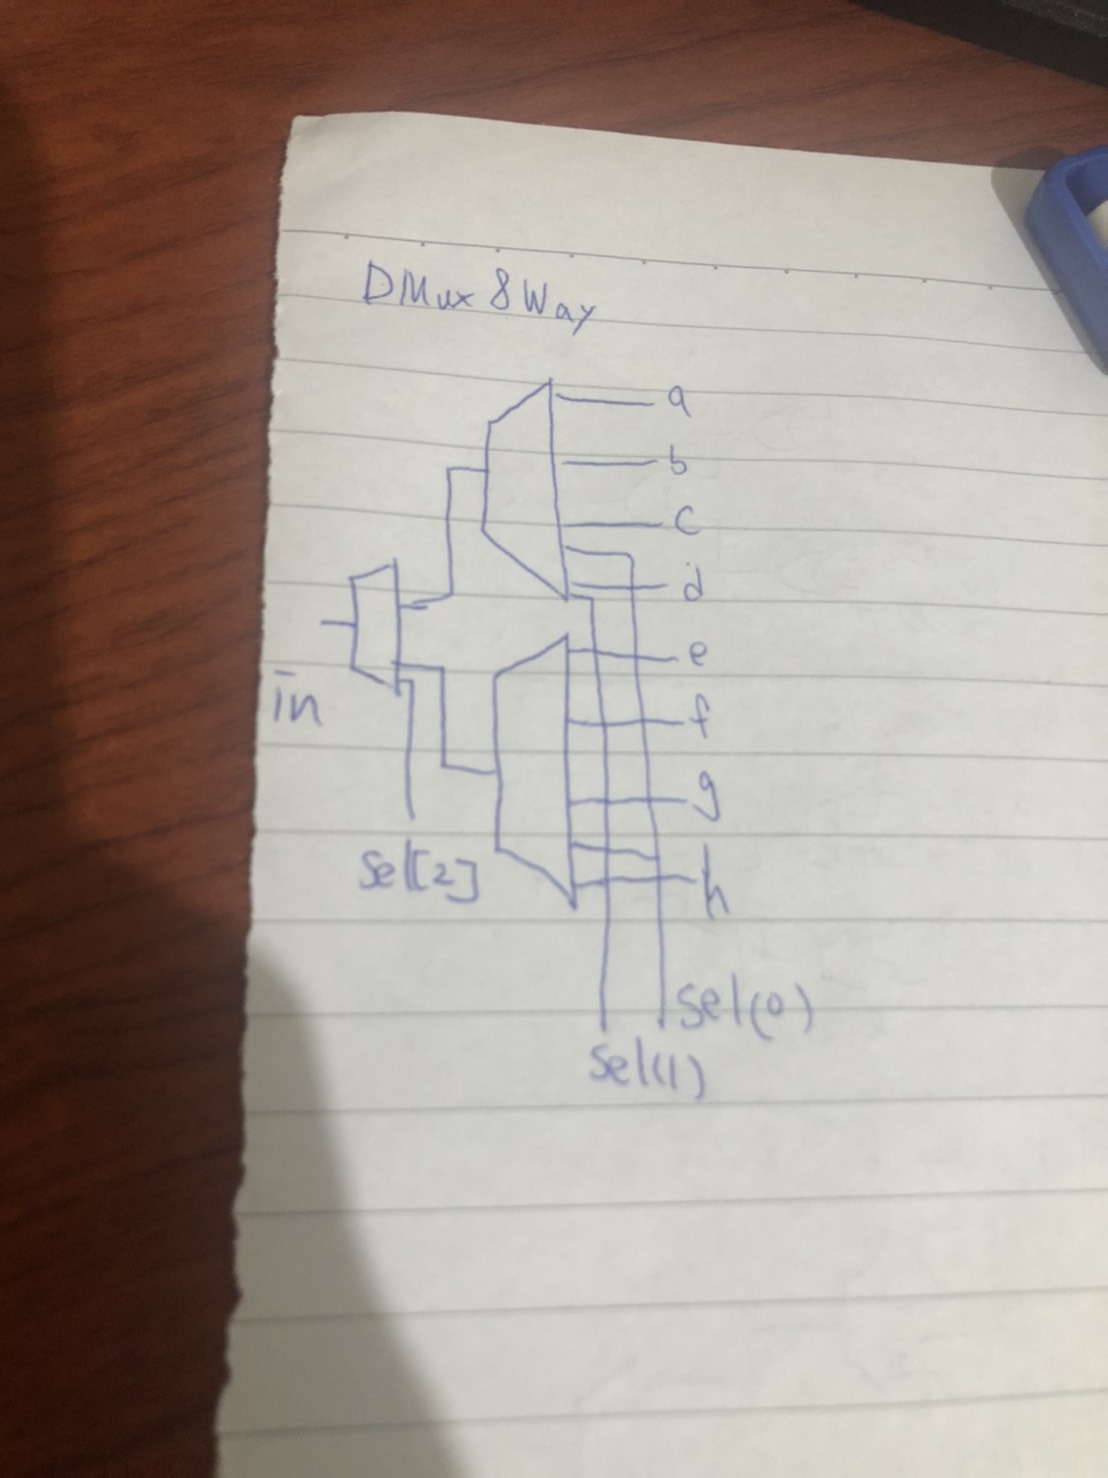 DMux 8 Way
a
b
c
d
e
f
g
h
in
Sel[2]
Sel(0)
Sel(1)